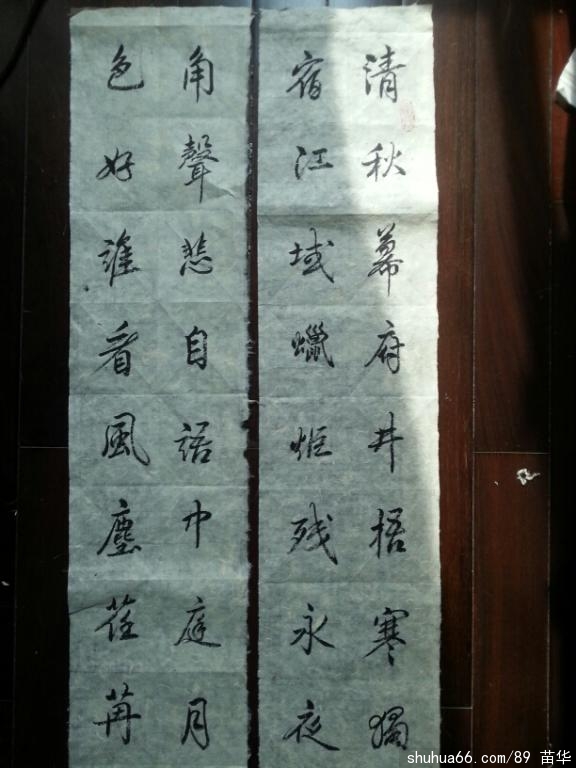 清秋幕府井梧寒獨
宿江域蠟炬残永夜
角聲悲自語中庭月
色好誰看風塵荏苒
shuhua66.com/89 苗华